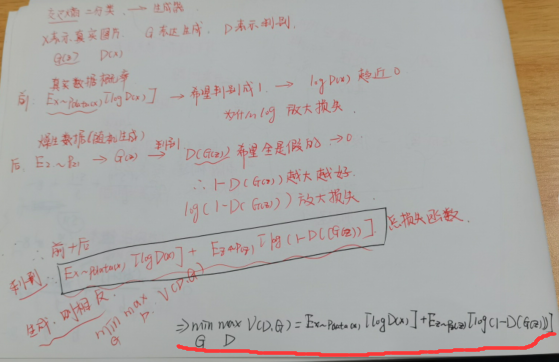 二分类 → 生成器
X表示真实图片, G表达生成, D表示判别
G(z) D(x)
真实数据概率
前: Ex~Pdata(x)[log D(x)] → 希望判别成1. → log D(x) 越近0
为什么log 放大损失.
爆生数据(随机生成)
后. Ez~P(z) → G(z) 判别→ D(G(z)) 希望全是假的 →0.
∴ 1-D(G(z)) 越大越好.
log(1-D(G(z))) 放大损失
∴ 前+后
判别 Ex~Pdata(x) [log D(x)] + Ez~P(z) [log(1-D((G(z)))]. 总损失函数.
生成. 则相反. min G max D. V(D,G)
⇒ min G max D V(D,G) = Ex~Pdata(x) [log D(x)] + Ez~Pz(z) [log(1-D(G(z)))]